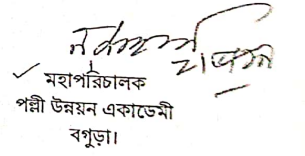 মহাপরিচালক
পল্লী উন্নয়ন একাডেমী
বগুড়া।